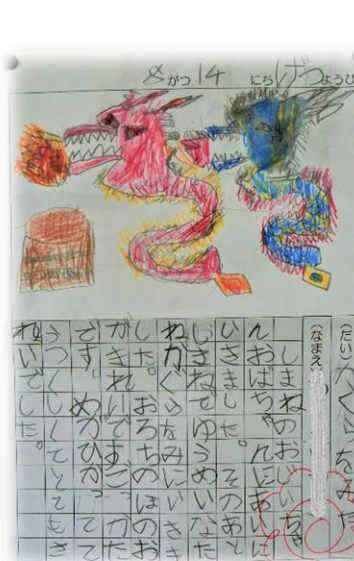 8がつ14にちげつようび
(だい)かぐらをみた
(なまえ)
しまねのおじいちゃ
んおばちゃんにあいに
いきました。そのあと
しまねでゆうめいなた
ねかぐらをみにいきま
した。おろちのほのお
がきれいですごかった
です。めがひかってて
うつくしくてとてもき
れいでした。